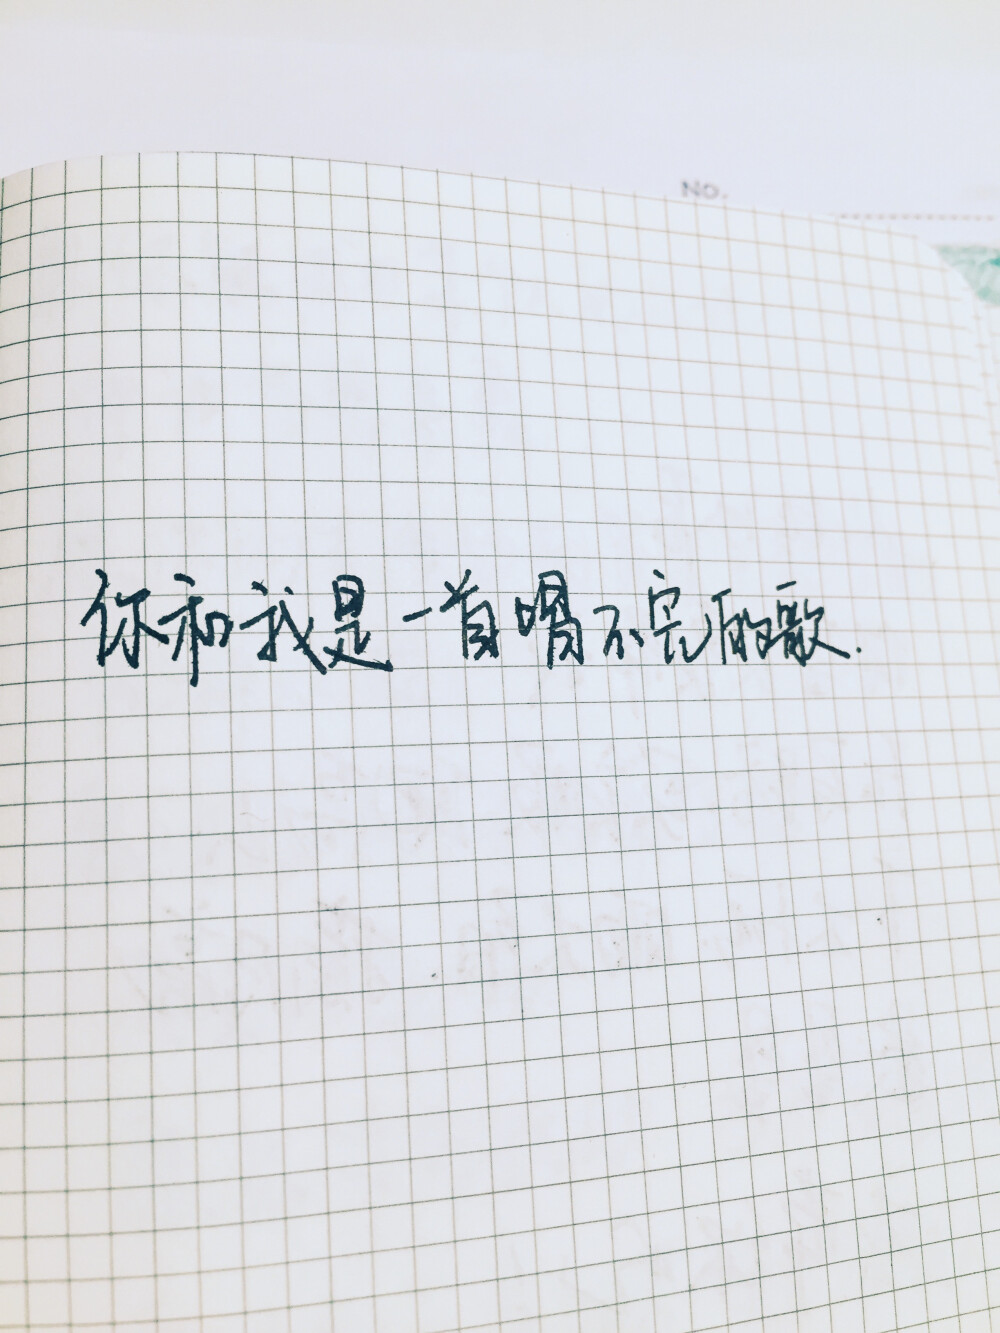 NO.
你和我是一首唱不完的歌.